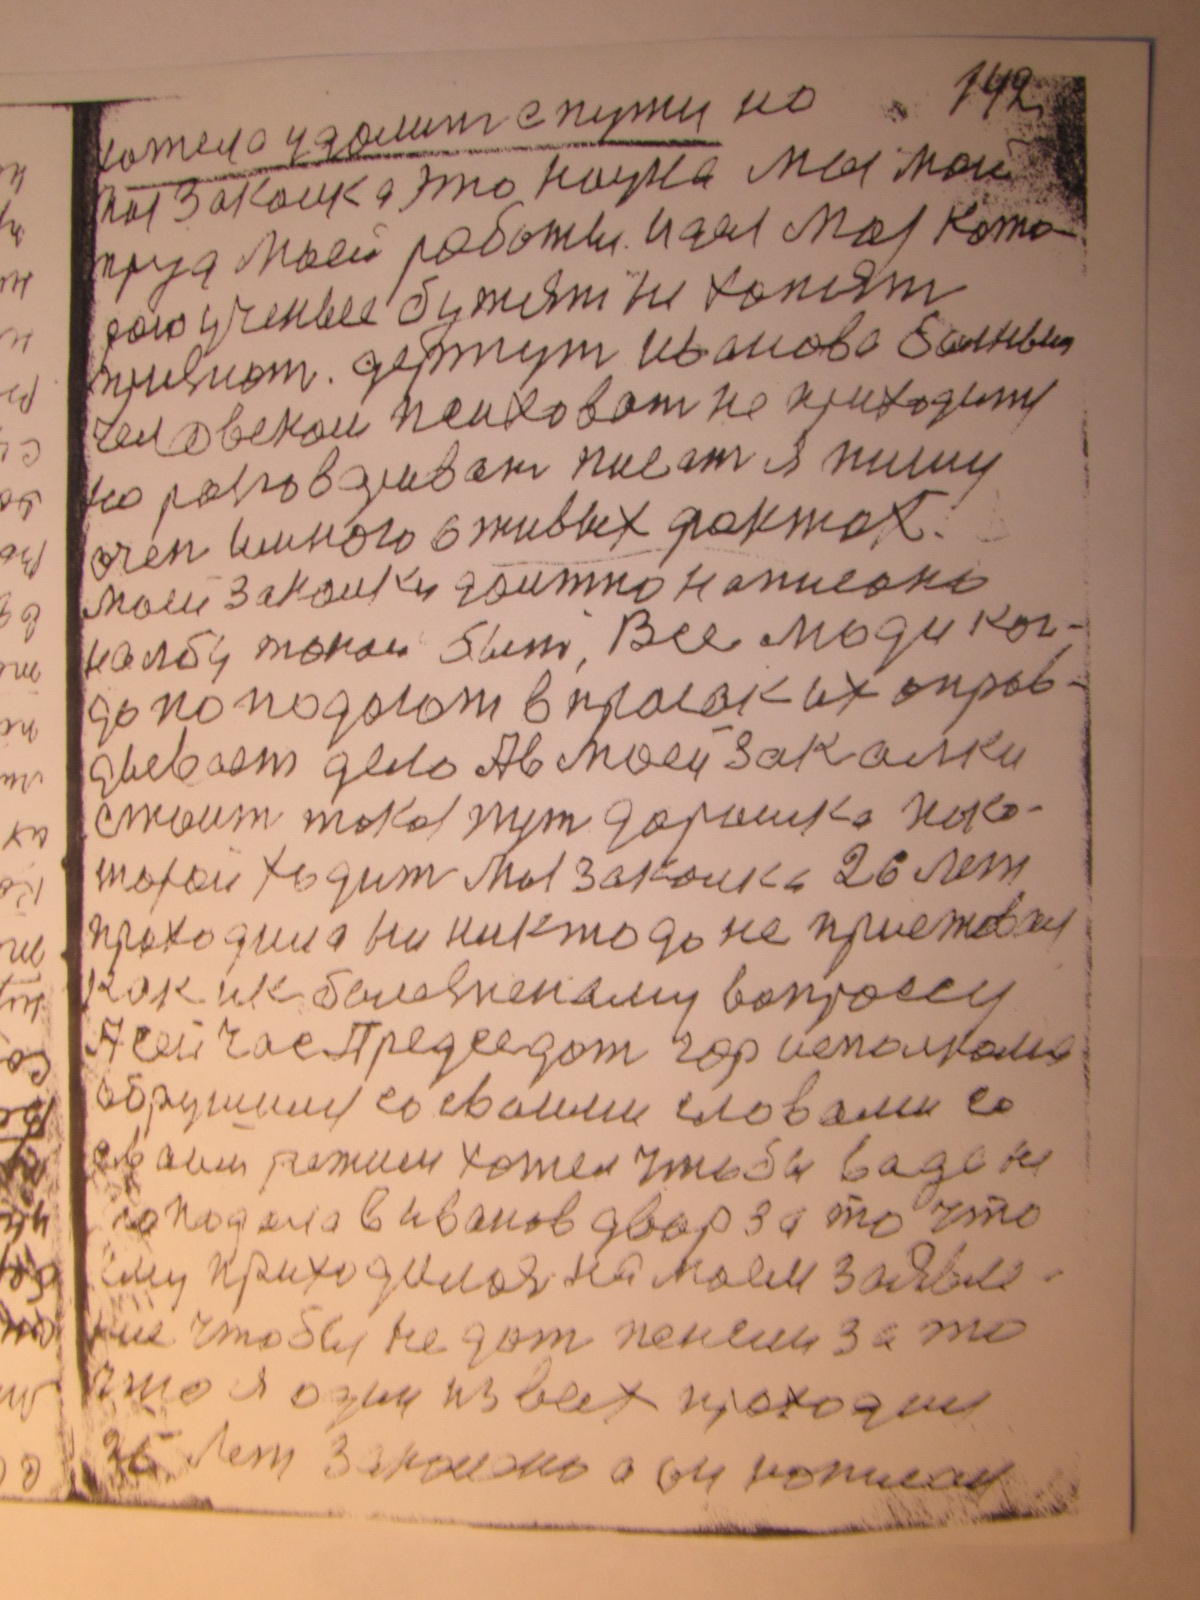 142.
хотела удалит с пужи но
моя закалка это наука моя мой
труд моей работы. идея моя кото
рою ученые бужят не хотят
прияют. держут иванова балным
человеком психоват не приходит
но разговариват писат я пишу
очен имного о живых фактах.
моей закалки должно написано
на лбу такой быт, Все люди ког-
до поподают в просак их оправ-
дывает дело Ав моей закалки
стоит така пут дорошка покo-
торой ходит моя закалка 26 лет
проходила ни никтодо не приставал
как ик балезненаму вопроссу
А сей час Председат гор исполкома
обрушил со своими словами со
сваим режим хотел чтобы вада не
поподала в иванов двор за то что
ему приходилоя на моем заявле-
ние чтобы не дат пенсии за то
что я один из всех проходил
26 Лет закалено а он написал